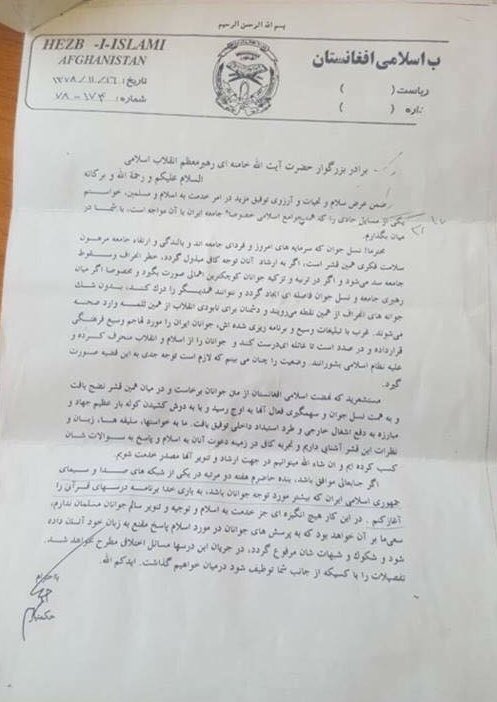 بسم الله الرحمن الرحیم
HEZB -I-ISLAMI
AFGHANISTAN
ب اسلامی افغانستان
تاریخ: ۱۳۷۸/۱۱/۲۶
ریاست ( )
شماره: ۱۷۴-۷۸
داره ( )
برادر بزرگوار حضرت آیت الله خامنه ای رهبر معظم انقلاب اسلامی
السلام علیکم و رحمة الله و برکاته
ضمن عرض سلام و تحیات و آرزوی توفیق مزید در امر خدمت به اسلام و مسلمین، خواستم
یکی از مسایل حادی را که همه جوامع اسلامی خصوصاً جامعه ایران با آن مواجه است، با شما در
میان بگذارم.
محترما! نسل جوان که سرمایه های امروز و فردای جامعه اند و بالندگی و ارتقاء جامعه مرهون
سلامت فکری همین قشر است، اگر به ارشاد آنان توجه کافی مبذول گردد، خطر انحراف و سقوط
جامعه سد می شود و اگر در تربیه و تزکیه جوانان کوچکترین اهمالی صورت بگیرد و بخصوص اگر میان
رهبری جامعه و نسل جوان فاصله ای ایجاد گردد و نتوانند همدیگر را درک کنند، بدون شک
جوانه های انحراف از همین نقطه می رویند و دشمنان برای نابودی انقلاب از همین ثلمه وارد صحنه
می شوند. غرب با تبلیغات وسیع و برنامه ریزی شده اش، جوانان ایران را مورد تهاجم وسیع فرهنگی
قرار داده و در صدد است تا غائله ای درست کند و جوانان را از اسلام و انقلاب منحرف کرده و
علیه نظام اسلامی بشورانند. وضعیت را چنان می بینم که لازم است توجه جدی به این قضیه صورت
گیرد.
مستشعرید که نهضت اسلامی افغانستان از میان جوانان برخاست و در میان همین قشر نضج یافت
و به همت نسل جوان و سهمگیری فعال آنها به اوج رسید و با به دوش کشیدن کوله بار عظیم جهاد و
مبارزه به دفع اشغال خارجی و طرد استبداد داخلی توفیق یافت. ما به خواستها، سلیقه ها، زبان و
نظرات این قشر آشنای داریم و تجربه کافی در زمینه دعوت آنان به اسلام و پاسخ به سوالات شان
کسب کرده ایم و ان شاء الله میتوانیم در جهت ارشاد و تنویر آنها مصدر خدمت شویم.
اگر جنابعالی موافق باشد، بنده حاضرم هفته دو مرتبه در یکی از شبکه های صدا و سیمای
جمهوری اسلامی ایران که بیشتر مورد توجه جوانان باشد، به یاری خدا برنامه درسهای قرآنی را
آغاز کنم. در این کار هیچ انگیزه ای جز خدمت به اسلام و توجیه و تنویر سالم جوانان مسلمان ندارم.
سعی ما بر آن خواهد بود که به پرسش های جوانان در مورد اسلام پاسخ مقنع به زبان خود آنان داده
شود و شکوک و شبهات شان مرفوع گردد، در جریان این درسها مسائل اختلافی مطرح نخواهد شد.
تفصیلات را با کسیکه از جانب شما توظیف شود در میان خواهیم گذاشت. ایدکم الله.
با احترام
حکمتیار